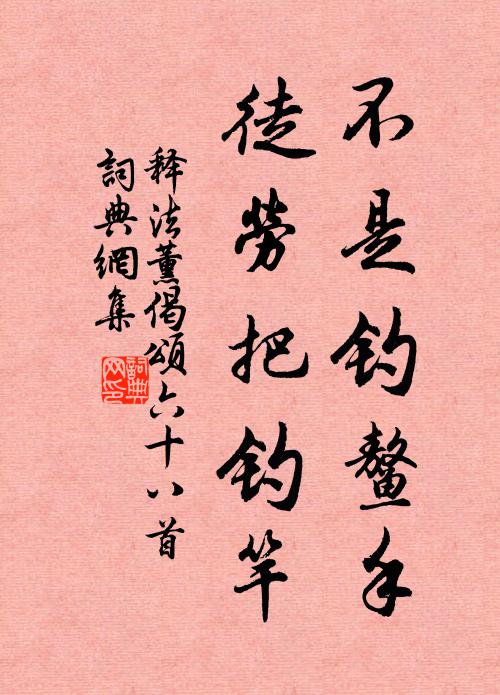 不是钓鳌手
徒劳把钓竿
释法薰偈颂六十八首
词典網集
詞典网印